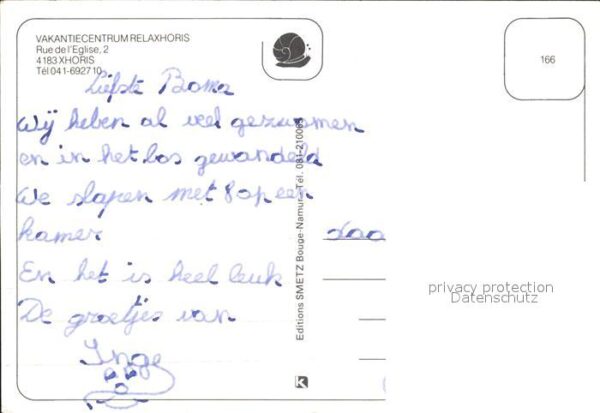 VAKANTIECENTRUM RELAXHORIS
Rue de l'Eglise, 2
4183 XHORIS
Tél 041-692710
166
Liefste Boma
Wij heben al veel gezwomen
en in het bos gewandeld
We slapen met 8 op een
kamer
En het is heel leuk
De groetjes van
Inge
Editions SMETZ Bouge-Namur - Tél. 081-210063
privacy protection
Datenschutz
K